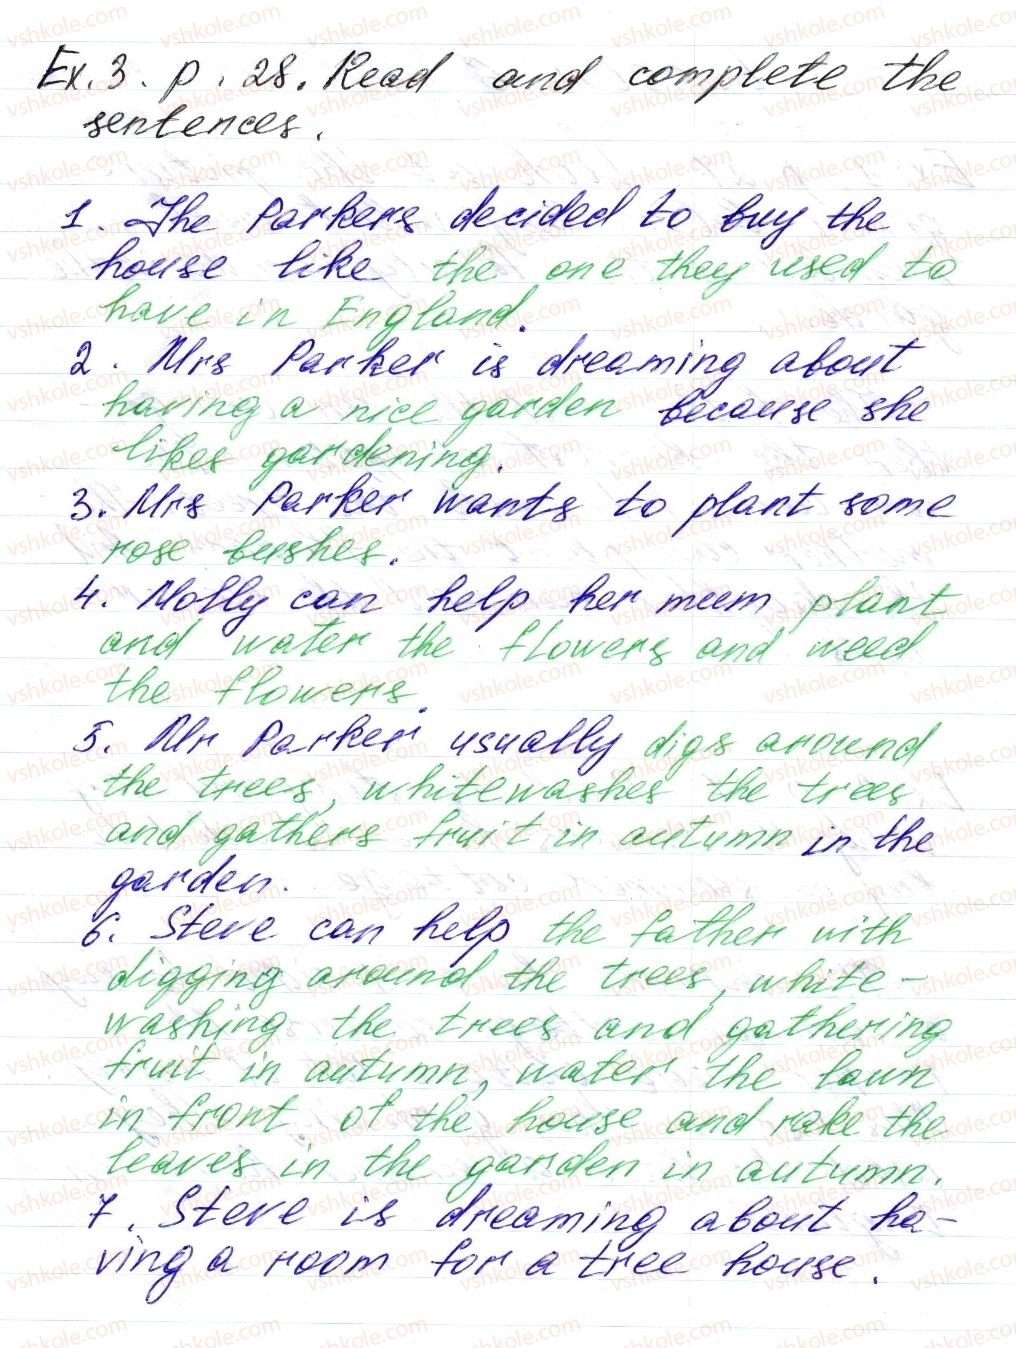 Ex. 3. p. 28. Read and complete the
sentences.
1. The Parkers decided to buy the
house like the one they used to
have in England.
2. Mrs Parker is dreaming about
having a nice garden because she
likes gardening.
3. Mrs Parker wants to plant some
rose bushes.
4. Molly can help her mum plant
and water the flowers and weed
the flowers.
5. Mr Parker usually digs around
the trees, whitewashes the trees
and gathers fruit in autumn in the
garden.
6. Steve can help the father with
digging around the trees, white-
washing the trees and gathering
fruit in autumn, water the lawn
in front of the house and rake the
leaves in the garden in autumn.
7. Steve is dreaming about ha-
ving a room for a tree house.
vshkole.com